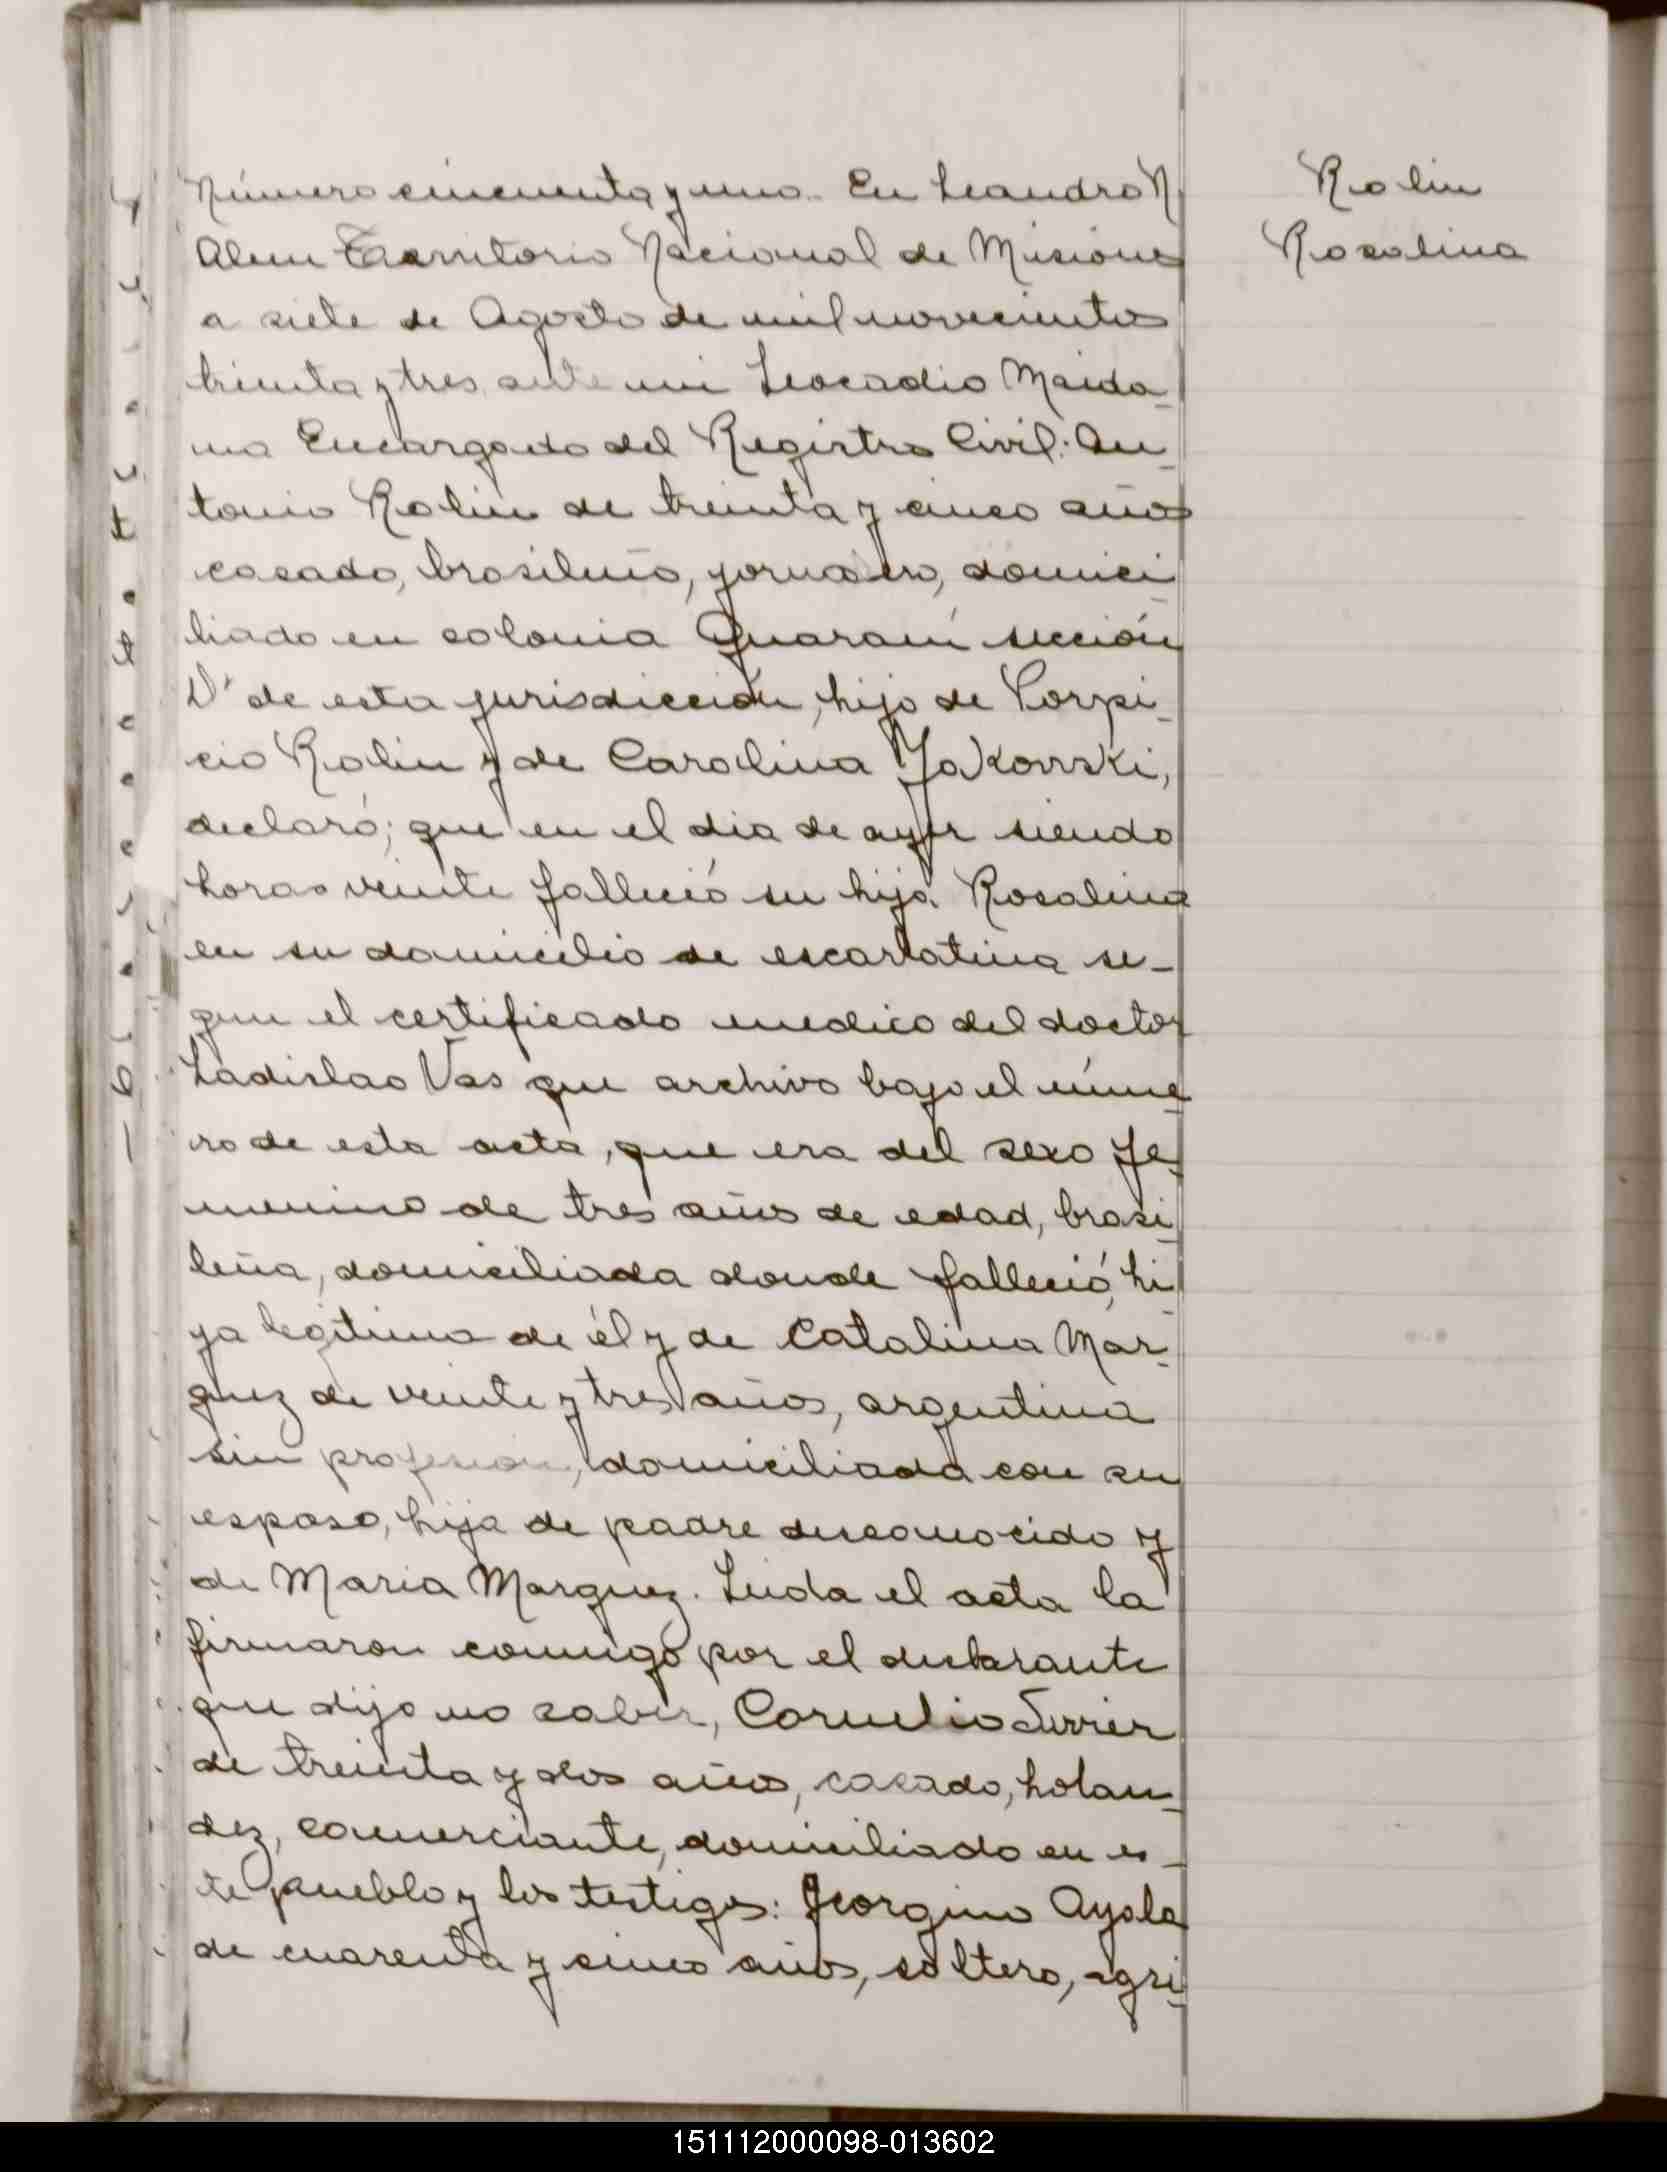 Número cincuenta y uno. En Leandro N.
Alem Territorio Nacional de Misiones
a siete de Agosto de mil novecientos
treinta y tres, ante mi Leocadio Maida_
na Encargado del Registro Civil: An_
tonio Rolin de treinta y cinco años
casado, brasileño, jornalero, domici_
liado en colonia Guaraní sección
V' de esta jurisdicción, hijo de Porpi_
cio Rolin y de Carolina Jakovski,
declaró; que en el dia de ayer siendo
horas veinte falleció su hija Rosalina
en su domicilio de escarlatina se_
gun el certificado medico del doctor
Ladislao Vas que archivo bajo el núme_
ro de esta acta, que era del sexo fe_
menino de tres años de edad, brasi_
leña, domiciliada donde falleció, hi_
ja legitima de él y de Catalina Mar_
quez de veinte y tres años, argentina
sin profesion, domiciliada con su
esposo, hija de padre desconocido y
de Maria Marquez. Leida el acta la
firmaron conmigo por el declarante
que dijo no saber, Cornelio
de treinta y dos años, casado, holan_
dez, comerciante, domiciliado en es_
te pueblo y los testigos: Georgino Ayala
de cuarenta y cinco años, soltero, agri_
Rolin
Rosalina
151112000098-013602